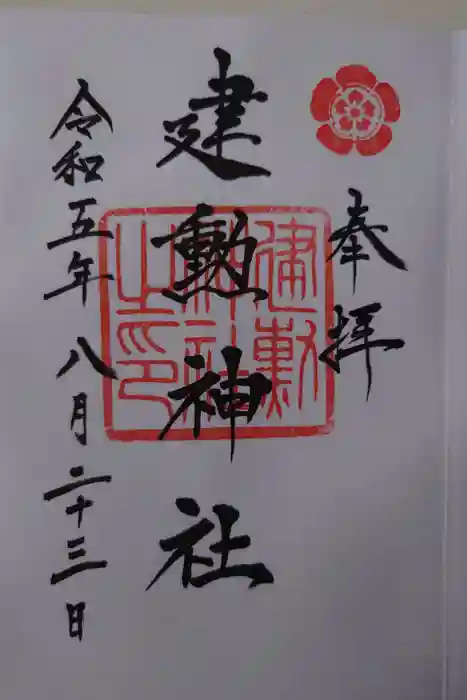 奉拝
建勲神社
建勲
神社
之印
令和五年八月二十三日